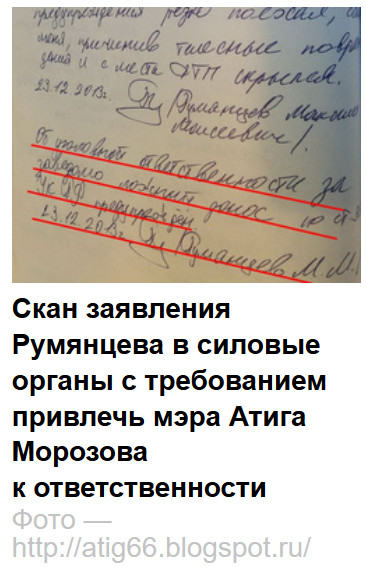 предупреждения резко поехал,
меня, причинив телесные повре
дения и с места ДТП скрылся.
23.12.2013г. Румянцев Максим
Моисеевич/.
Об уголовной ответственности за
заведомо ложный донос по ст.
УК РФ предупреждён.
23.12.2013г. Румянцев М.М.
Скан заявления
Румянцева в силовые
органы с требованием
привлечь мэра Атига
Морозова
к ответственности
Фото —
http://atig66.blogspot.ru/